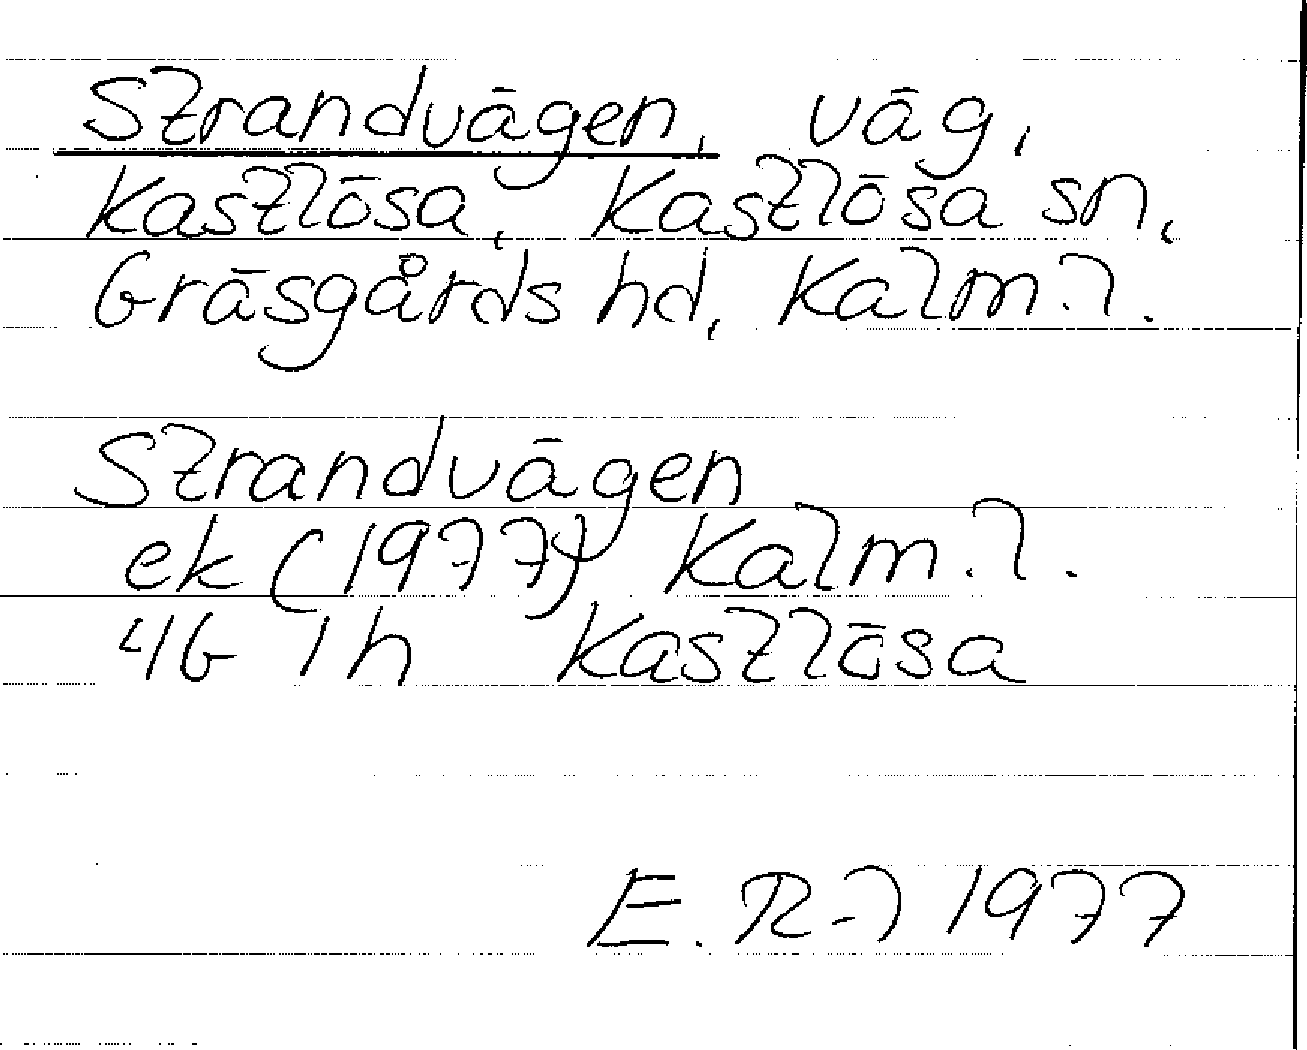 Strandvägen, väg,
Kastlösa, Kastlösa sn,
Gräsgårds hd, Kalm.l.
Strandvägen
ek (1977) Kalm.l.
4G 1h Kastlösa
E. R-l 1977